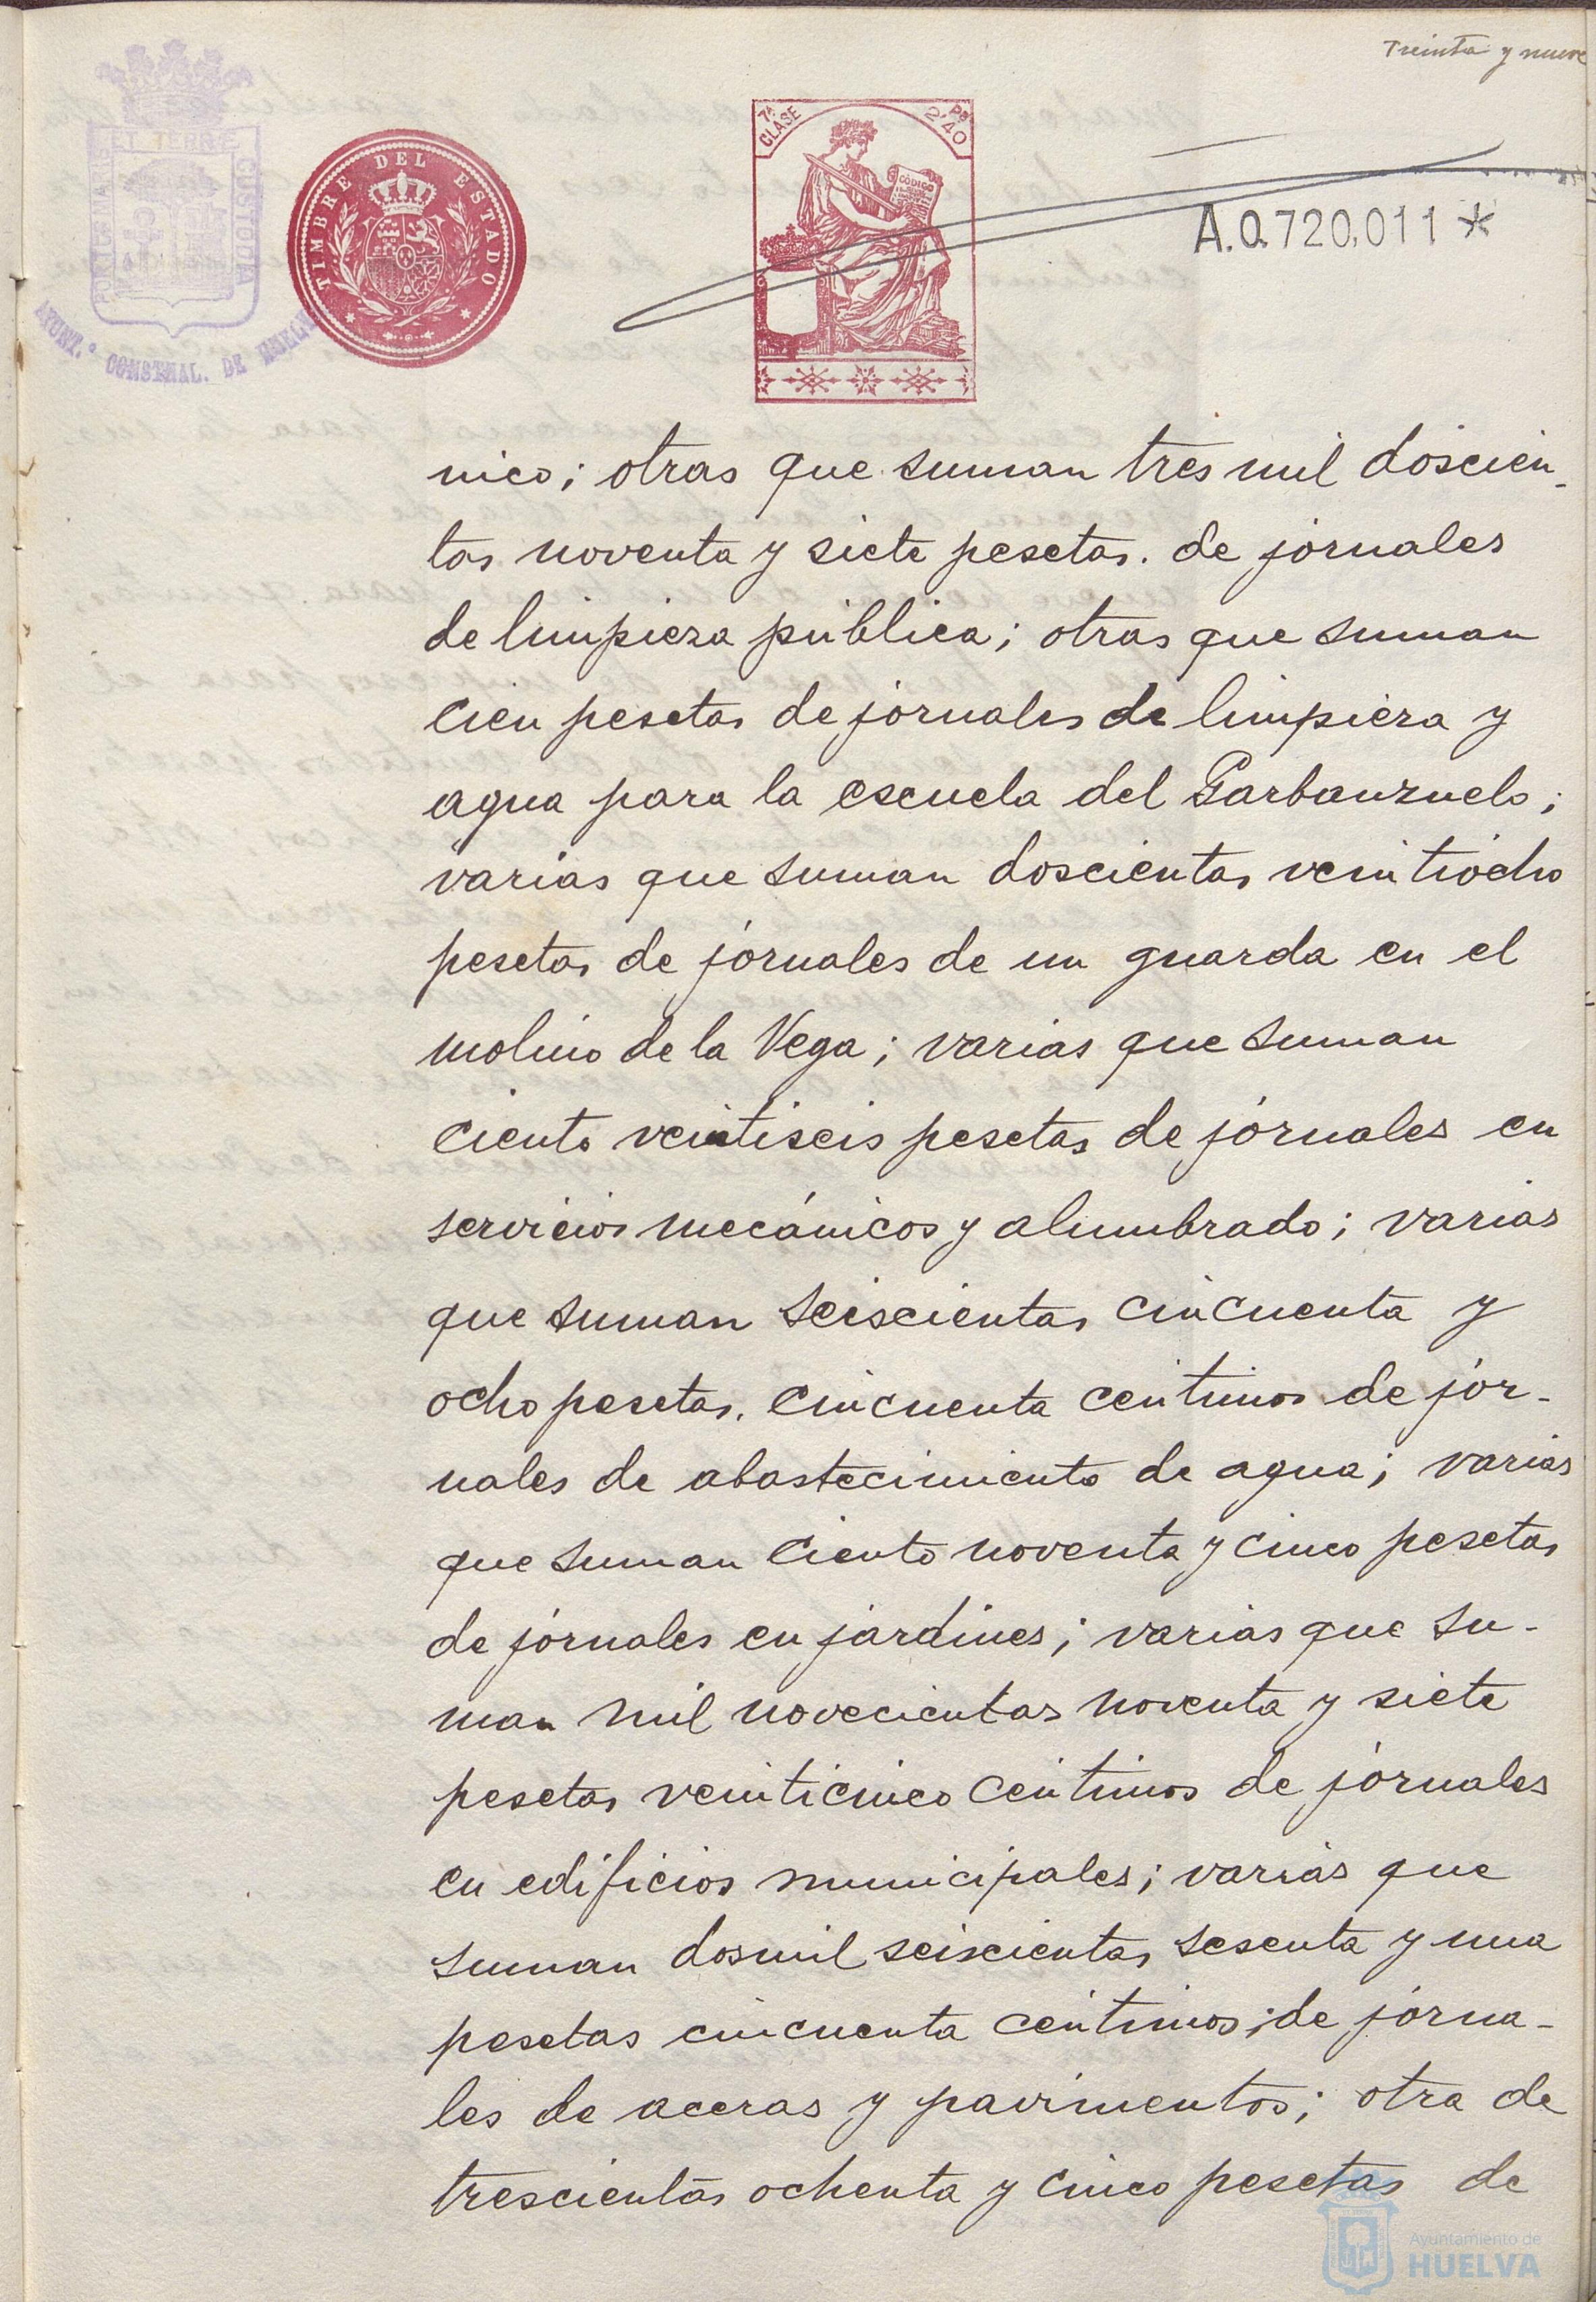 Treinta y nueve
PORTUS MARIS ET TERRE CUSTODIA
AYUNT.º CONSTNAL. DE HUELVA
TIMBRE DEL ESTADO
7ª CLASE
Ps 2'40
CODIGO
A.0.720,011*
nico; otras que suman tres mil doscien-
tas noventa y siete pesetas. de jornales
de limpieza pública; otras que suman
cien pesetas de jornales de limpieza y
agua para la escuela del Garbanzuelo;
varias que suman doscientas veintiocho
pesetas de jornales de un guarda en el
molino de la Vega; varias que suman
ciento veintiseis pesetas de jornales en
servicios mecánicos y alumbrado; varias
que suman seiscientas cincuenta y
ocho pesetas, cincuenta centimos de jor-
nales de abastecimiento de agua; varias
que suman ciento noventa y cinco pesetas
de jornales en jardines; varias que su-
man mil novecientas noventa y siete
pesetas veinticinco centimos de jornales
en edificios municipales; varias que
suman dosmil seiscientas sesenta y una
pesetas cincuenta centimos; de jorna-
les de aceras y pavimentos; otra de
trescientas ochenta y cinco pesetas de
Ayuntamiento de
HUELVA